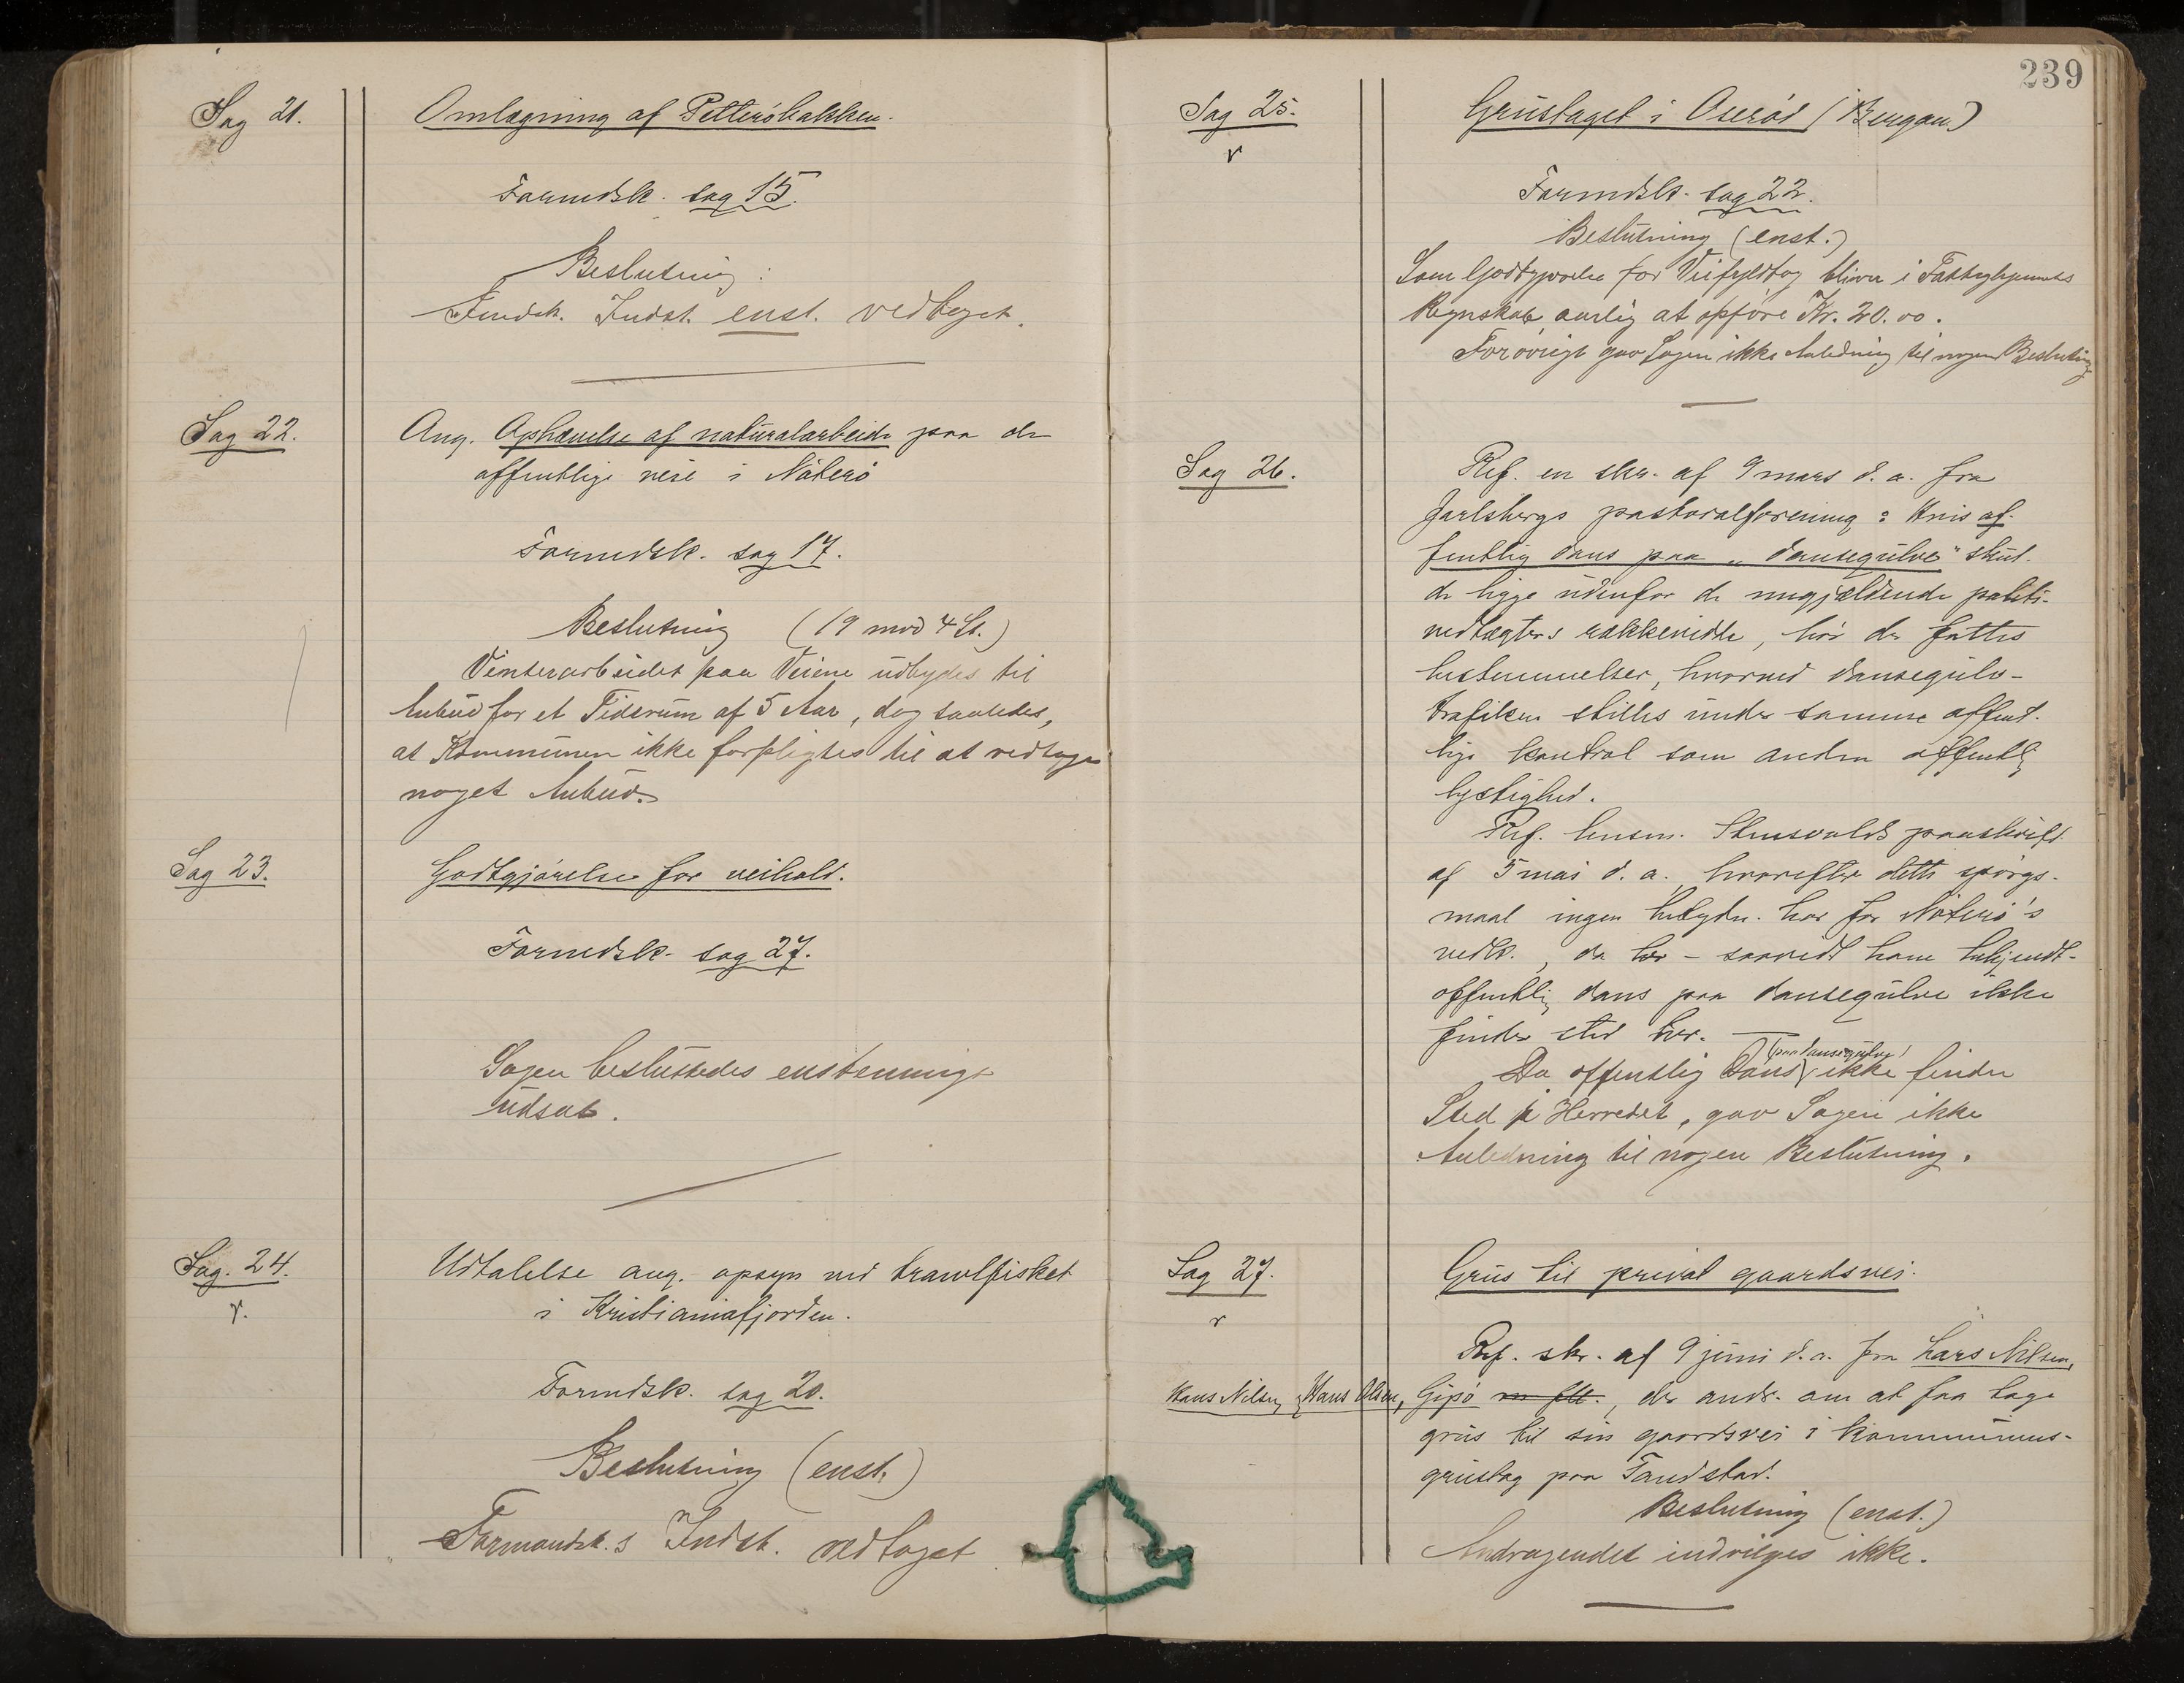 Sag 21.
Omlægning af Petterøbakken.
Formdsk. sag 15.
Beslutning:
Fmdsk. Indst. enst. vedtaget.
Sag 22.
Ang. Ophævelse af naturalarbeide paa de
offentlige veie i Nøterø
Formdsk. sag 17.
Beslutning (19 mod 4 St.)
Vinterarbeidet paa Veiene udbydes til
Anbud for et Tidsrum af 5 Aar, dog saaledes,
at Kommunen ikke forpligtes til at vedtage
noget Anbud.
Sag 23.
Godtgjørelse for veihold.
Formdsk. sag 27.
Sagen besluttedes enstemmigt
udsat.
Sag. 24.
v.
Udtalelse ang. opsyn ved trawlfisket
i Kristianiafjorden.
Formdsk. sag 20.
Beslutning (enst.)
Formandsk.s Indst. vedtaget.
239
Sag 25.
v
Grustaget i Oserød (Bergan)
Formdsk. sag 22.
Beslutning (enst.)
Som Godtgjørelse for Veifyldtag bliver i
Regnskab aarlig at opføre Kr. 20.00.
Forøvrigt gav Sagen ikke Anledning til nogen Beslutning
Sag 26.
Ref. en skr. af 9 mars d. a. fra
Jarlsbergs pastoralforening: Hvis of-
fentlig dans paa "dansegulve" skul-
de ligge udenfor de nugjældende politi-
vedtægters rækkevidde, bør der fattes
bestemmelser, hvorved dansegulv-
trafiken stilles under samme offent-
lige kontrol som anden offentlig
lystighed.
Ref. lensm. Stensvolds paaskrift
af 5 mai d. a. hvorefter dette spørgs-
maal ingen betydn. har for Nøterø's
vedk., da her - saavidt ham bekjendt -
offentlig dans paa dansegulve ikke
finder sted her.
Da offentlig Dans (paa dansegulve) ikke finder
Sted i Herredet, gav Sagen ikke
Anledning til nogen Beslutning.
Sag 27.
v
Grus til privat gaardsvei.
Ref. skr. af 9 juni d. a. fra Lars Nilsen,
Hans Nilsen, Hans Olsen, Gipø m. fl., der andr. om at faa tage
grus til sin gaardsvei i kommunens
grustag paa Tandstad.
Beslutning (enst.)
Andragendet indvilges ikke.